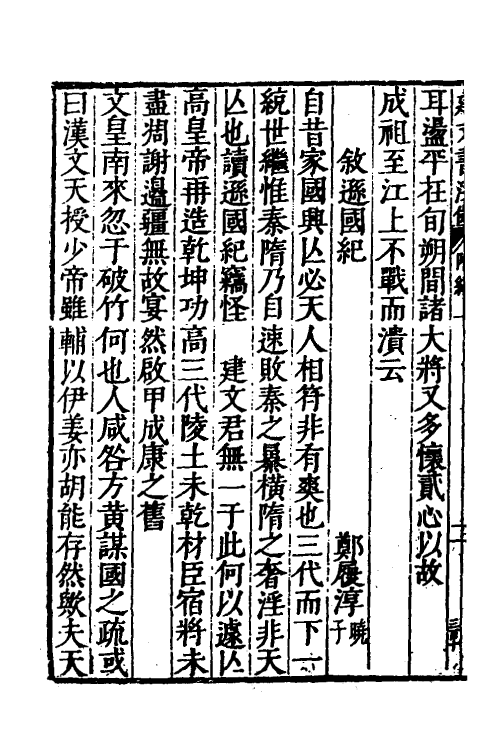 耳盪平在旬朔間諸大將又多懷貳心以故
成祖至江上不戰而潰云
敘遜國紀 鄭履淳曉子
自昔家國興亾必天人相符非有爽也三代而下一
統世繼惟秦隋乃自速敗秦之暴橫隋之奢淫非天
亾也讀遜國紀竊怪 建文君無一于此何以遽亾
高皇帝再造乾坤功高三代陵土未乾材臣宿將未
盡凋謝邊疆無故宴然啟甲成康之舊
文皇南來忽于破竹何也人咸咎方黃謀國之疏或
曰漢文天授少帝雖輔以伊姜亦胡能存然歟夫天